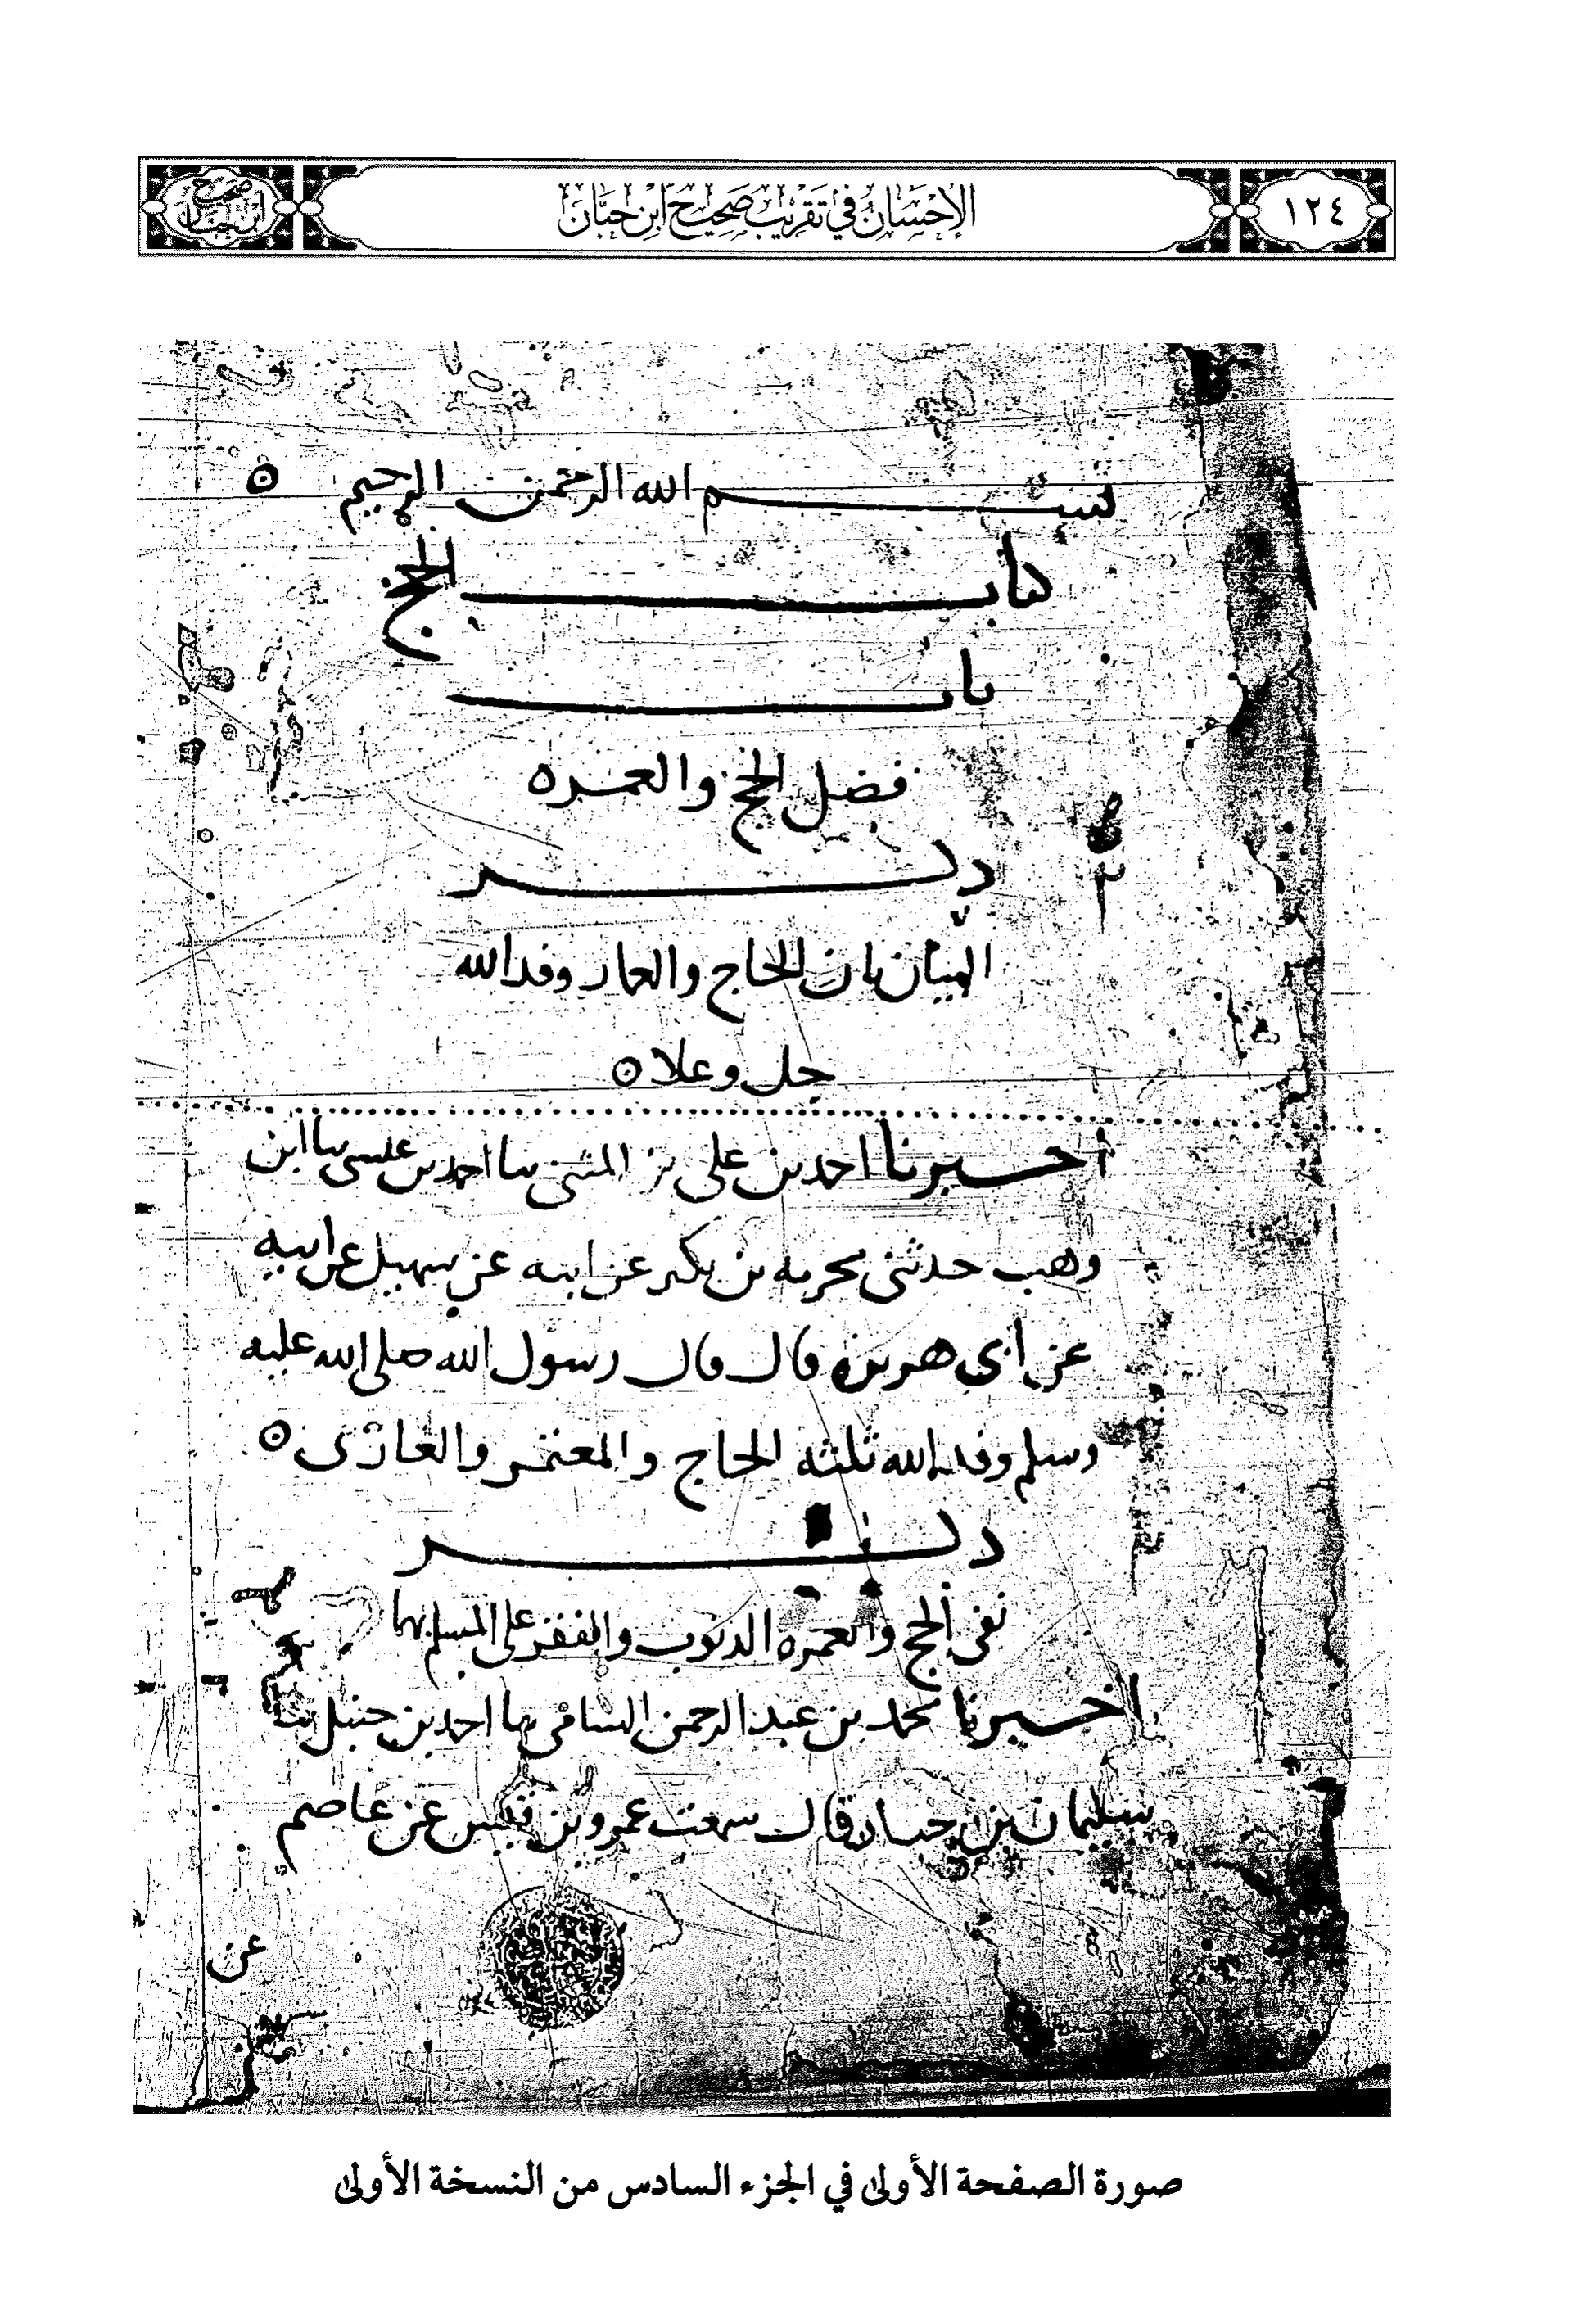 ١٢٤
الإحسان في تقريب صحيح ابن حبان
صحيح ابن حبان
بسم الله الرحمن الرحيم
كتاب الحج
باب
فضل الحج والعمره
ذكر
البيان بان الحاج والعمار وفد الله
جل وعلا
اخبرنا احمد بن علي بن المثنى ثنا احمد بن عيسى ثنا ابن
وهب حدثني مخرمه بن بكير عن ابيه عن سهيل عن ابيه
عن ابي هريره قال قال رسول الله صلى الله عليه
وسلم وفد الله ثلثه الحاج والمعتمر والغازى
ذكر
نفي الحج والعمره الذنوب والفقر على المسلم بهما
اخبرنا محمد بن عبد الرحمن السامي ثنا احمد بن حنبل ثنا
سليمان بن حيان قال سمعت عمرو بن قيس عن عاصم
عن
صورة الصفحة الأولى في الجزء السادس من النسخة الأولى